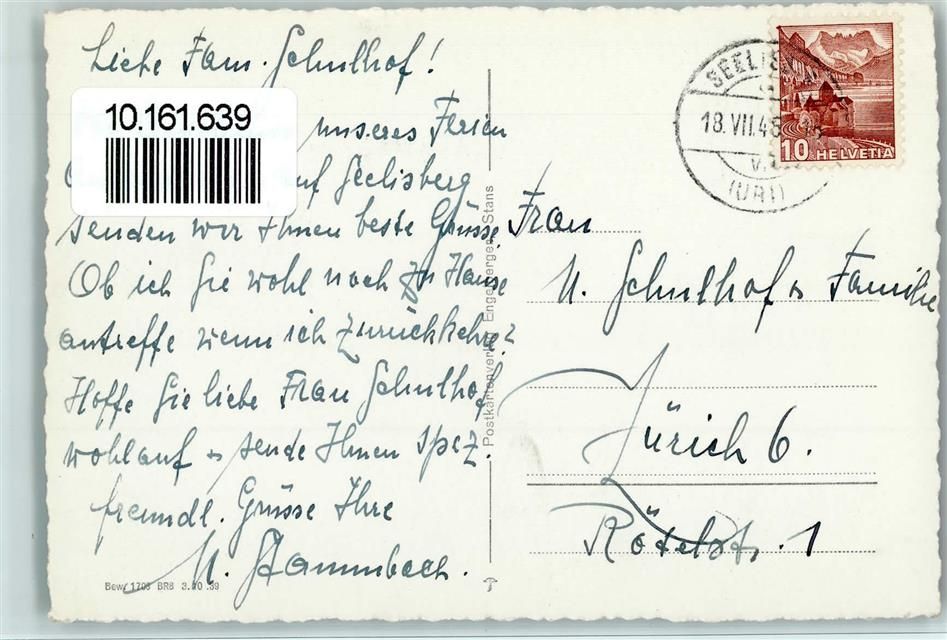 Liebe Fam. Schulhof!
10.161.639
unseres Ferien
auf Seelisberg
senden wir Ihnen beste Grüsse.
Ob ich Sie wohl noch zu Hause
antreffe wenn ich zurückkehre?
Hoffe Sie liebe Frau Schulhof
wohlauf & sende Ihnen spez.
freundl. Grüsse Ihre
M. Stammbach.
Bew. 1703 BRB 3.10.39
Postkartenverlag Engelberger, Stans
18.VII.48
(URI)
10 HELVETIA
Frau
M. Schulhof & Familie
Zürich 6.
Rötelstr. 1